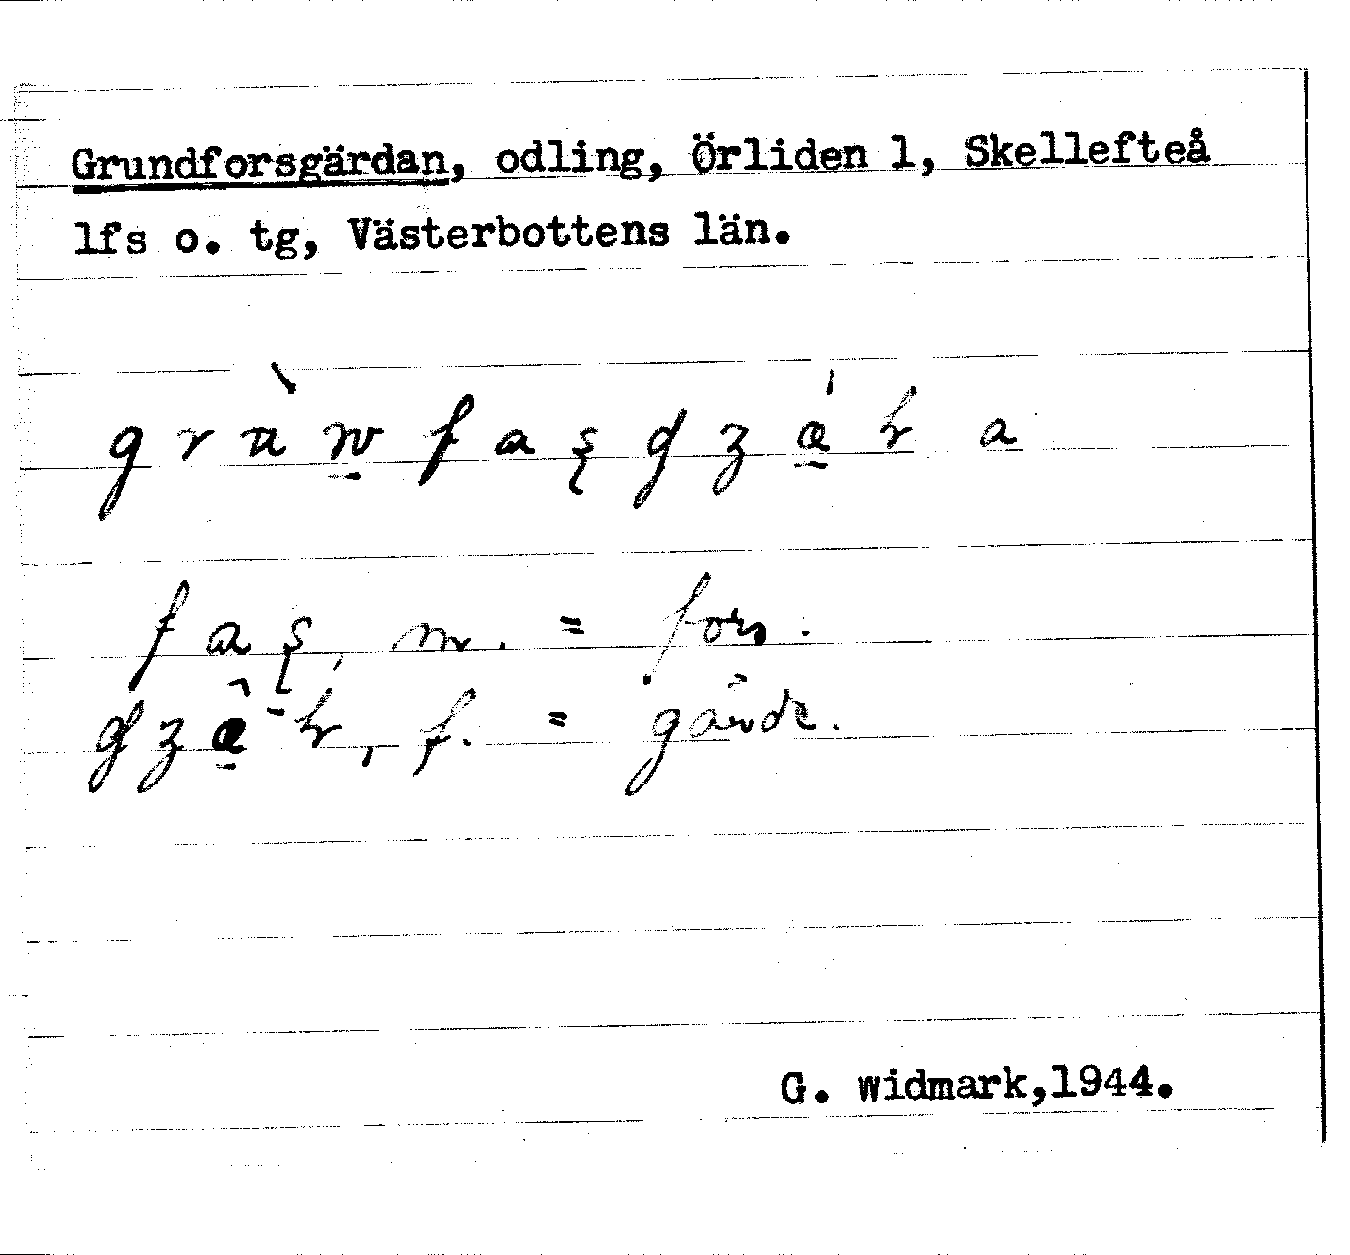 Grundforsgärdan, odling, Örliden 1, Skellefteå
lfs o. tg, Västerbottens län.
m. = fors.
f. = gärde.
G. Widmark,1944.